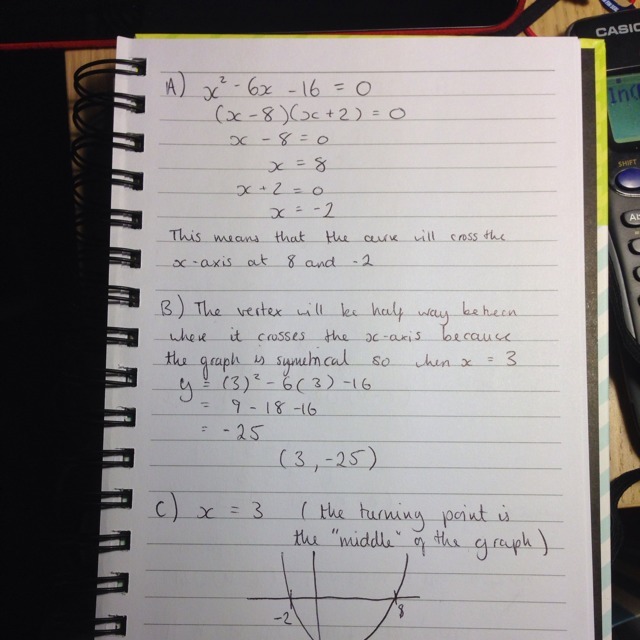 A) x² - 6x - 16 = 0
(x - 8)(x + 2) = 0
x - 8 = 0
x = 8
x + 2 = 0
x = -2
This means that the curve will cross the
x-axis at 8 and -2
B) The vertex will be half way between
where it crosses the x-axis because
the graph is symetrical so when x = 3
y = (3)² - 6(3) - 16
= 9 - 18 - 16
= -25
(3, -25)
C) x = 3 (the turning point is
the "middle" of the graph)
-2 8
CASIO
SHIFT